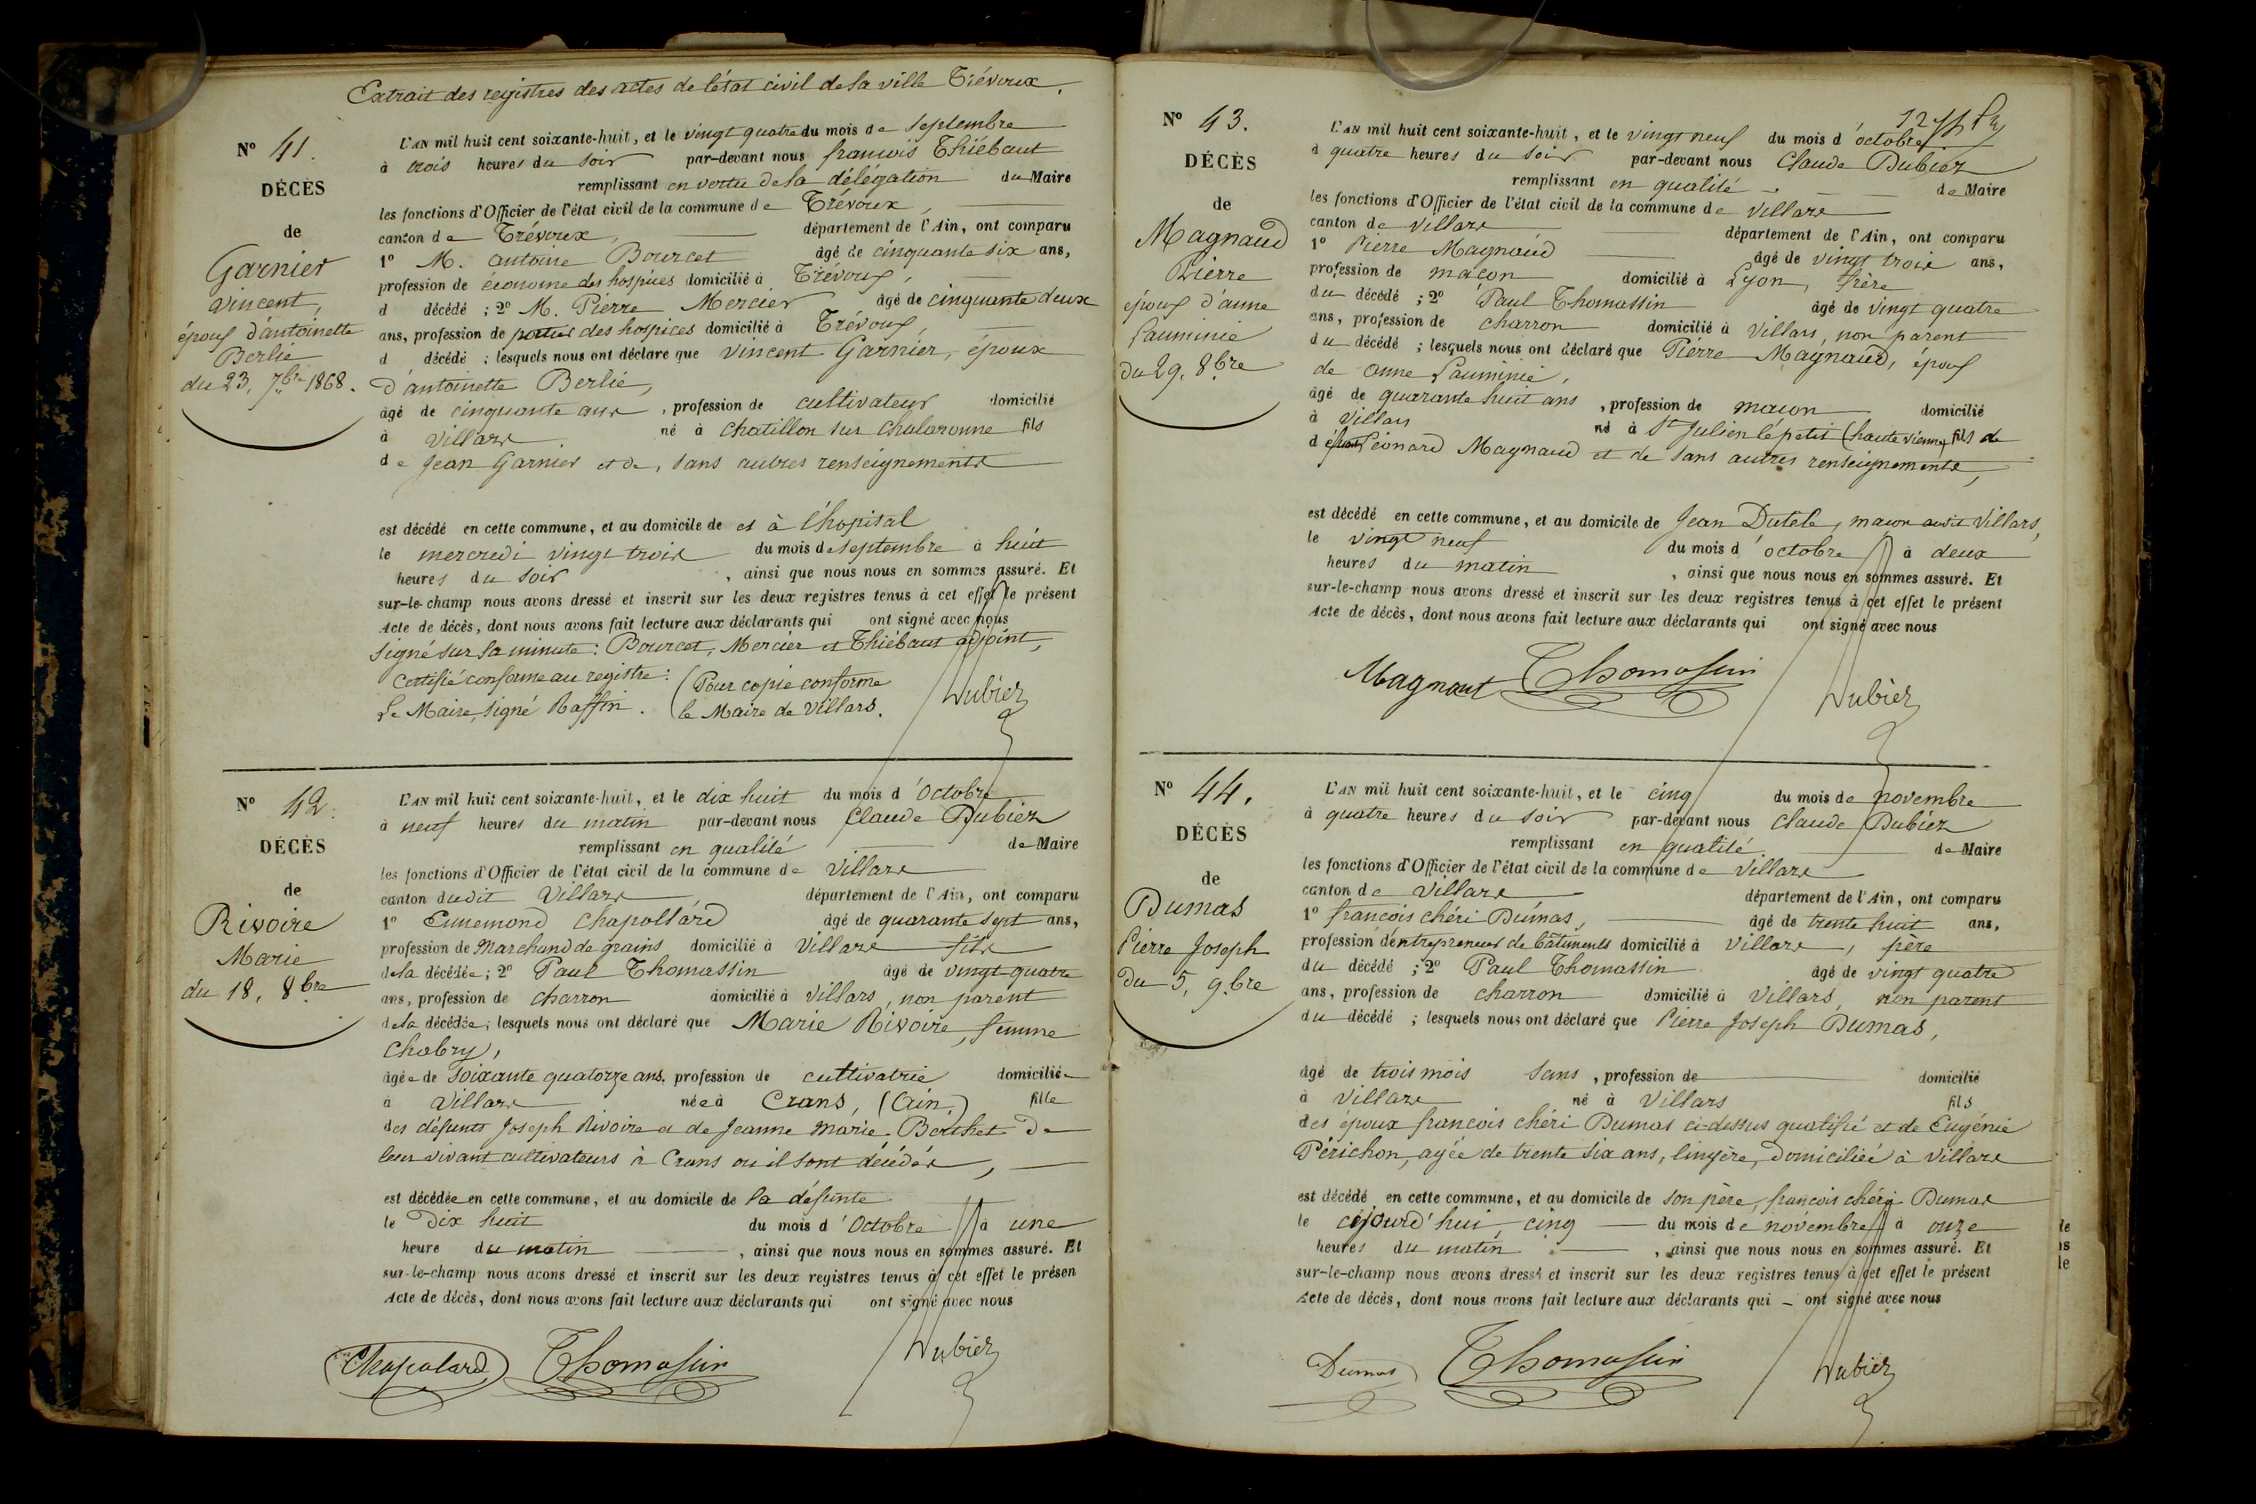 Extrait des registres des actes de l'état civil de la ville Trévoux.
N° 41.
DÉCÈS
de
Garnier
Vincent,
époux d'antoinette
Berlié
du 23, 7bre 1868.
L'AN mil huit cent soixante-huit, et le vingt quatre du mois de septembre
à trois heures du soir par-devant nous francois Thiébaut
remplissant en vertu de la délégation du Maire
les fonctions d'Officier de l'état civil de la commune de Trévoux,
canton de Trévoux, département de l'Ain, ont comparu
1° M. antoine Bourcet âgé de cinquante six ans,
profession de économe des hospices domicilié à Trévoux,
d décédé ; 2° M. Pierre Mercier âgé de cinquante deux
ans, profession de portier des hospices domicilié à Trévoux,
d décédé ; lesquels nous ont déclaré que Vincent Garnier, époux
d'antoinette Berlié,
âgé de cinquante ans, profession de cultivateur domicilié
à Villars. né à Chatillon sur Chalaronne fils
de Jean Garnier et de, sans autres renseignements
est décédé en cette commune, et au domicile de et à l'hopital
le mercredi vingt trois du mois de septembre à huit
heures du soir, ainsi que nous nous en sommes assuré. Et
sur-le-champ nous avons dressé et inscrit sur les deux registres tenus à cet effet le présent
Acte de décès, dont nous avons fait lecture aux déclarants qui ont signé avec nous
signé sur la minute : Bourcet, Mercier et Thiébaut adjoint,
Certifié conforme au registre : (Pour copie conforme
Le Maire, signé Raffin. le Maire de Villars. Dubiez
N° 42.
DÉCÈS
de
Rivoire
Marie
du 18, 8bre
L'AN mil huit cent soixante-huit, et le dix huit du mois d'Octobre
à neuf heures du matin par-devant nous Claude Dubiez
remplissant en qualité de Maire
les fonctions d'Officier de l'état civil de la commune de Villars
canton dudit Villars département de l'Ain, ont comparu
1° Ennemond Chapollard âgé de quarante sept ans,
profession de Marchand de grains domicilié à Villars fils
de la décédée ; 2° Paul Thomassin âgé de vingt quatre
ans, profession de charron domicilié à Villars, non parent
de la décédée ; lesquels nous ont déclaré que Marie Rivoire, femme
Chabry,
âgée de soixante quatorze ans, profession de cultivatrie domiciliée
à Villars née à Crans, (Ain.) fille
des défunts Joseph Rivoire et de Jeanne Marie Berthet de
leur vivant cultivateurs à Crans ou il sont décédés,
est décédée en cette commune, et au domicile de la défunte
le Dix huit du mois d'Octobre à une
heure du matin, ainsi que nous nous en sommes assuré. Et
sur-le-champ nous avons dressé et inscrit sur les deux registres tenus à cet effet le présen
Acte de décès, dont nous avons fait lecture aux déclarants qui ont signé avec nous
Chapolard Thomassin Dubiez
N° 43.
DÉCÈS
de
Magnaud
Pierre
époux d'anne
Lauminie
du 29, 8bre
L'AN mil huit cent soixante-huit, et le vingt neuf du mois d'octobre
à quatre heures du soir par-devant nous Claude Dubiez
remplissant en qualité de Maire
les fonctions d'Officier de l'état civil de la commune de Villars
canton de Villars département de l'Ain, ont comparu
1° Pierre Magnaud âgé de vingt trois ans,
profession de maçon domicilié à Lyon, frère
du décédé ; 2° Paul Thomassin âgé de vingt quatre
ans, profession de charron domicilié à Villars, non parent
du décédé ; lesquels nous ont déclaré que Pierre Magnaud, époux
de anne Lauminie,
âgé de quarante huit ans, profession de macon domicilié
à Villars né à St Julien le petit (haute vienne) fils de
d Léonard Magnaud et de sans autres renseignements,
est décédé en cette commune, et au domicile de Jean Dutele, macon audit Villars,
le vingt neuf du mois d'octobre à deux
heures du matin, ainsi que nous nous en sommes assuré. Et
sur-le-champ nous avons dressé et inscrit sur les deux registres tenus à cet effet le présent
Acte de décès, dont nous avons fait lecture aux déclarants qui ont signé avec nous
Magnaut Thomassin Dubiez
N° 44.
DÉCÈS
de
Dumas
Pierre Joseph
du 5, 9bre
L'AN mil huit cent soixante-huit, et le cinq du mois de novembre
à quatre heures du soir par-devant nous Claude Dubiez
remplissant en qualité de Maire
les fonctions d'Officier de l'état civil de la commune de Villars
canton de Villars département de l'Ain, ont comparu
1° françois chéri Dumas, âgé de trente huit ans,
profession d'entrepreneur de bâtiments domicilié à Villars, père
du décédé ; 2° Paul Thomassin âgé de vingt quatre
ans, profession de charron domicilié à Villars, non parent
du décédé ; lesquels nous ont déclaré que Pierre Joseph Dumas,
âgé de trois mois sans, profession de domicilié
à Villars né à Villars fils
des époux francois chéri Dumas ci-dessus qualifié et de Eugénie
Périchon, agée de trente six ans, lingère, domiciliée à Villars
est décédé en cette commune, et au domicile de son père, francois chéri Dumas
le cejourd'hui, cinq du mois de novembre à onze
heures du matin, ainsi que nous nous en sommes assuré. Et
sur-le-champ nous avons dressé et inscrit sur les deux registres tenus à cet effet le présent
Acte de décès, dont nous avons fait lecture aux déclarants qui – ont signé avec nous
Dumas Thomassin Dubiez